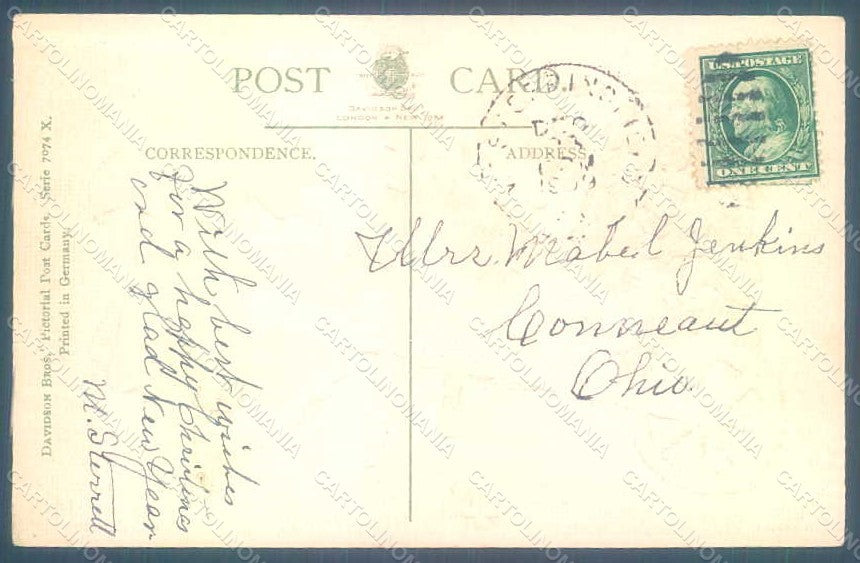 POST CARD.
DAVIDSON BROS
LONDON & NEW YORK
CORRESPONDENCE.
ADDRESS
U.S. POSTAGE
ONE CENT
Mrs. Mabel Jenkins
Conneaut
Ohio
With best wishes
for a happy Christmas
and glad New Year
M. Sterrett
DAVIDSON BROS.' Pictorial Post Cards, Serie 7074 X.
Printed in Germany.
CARTOLINOMANIA